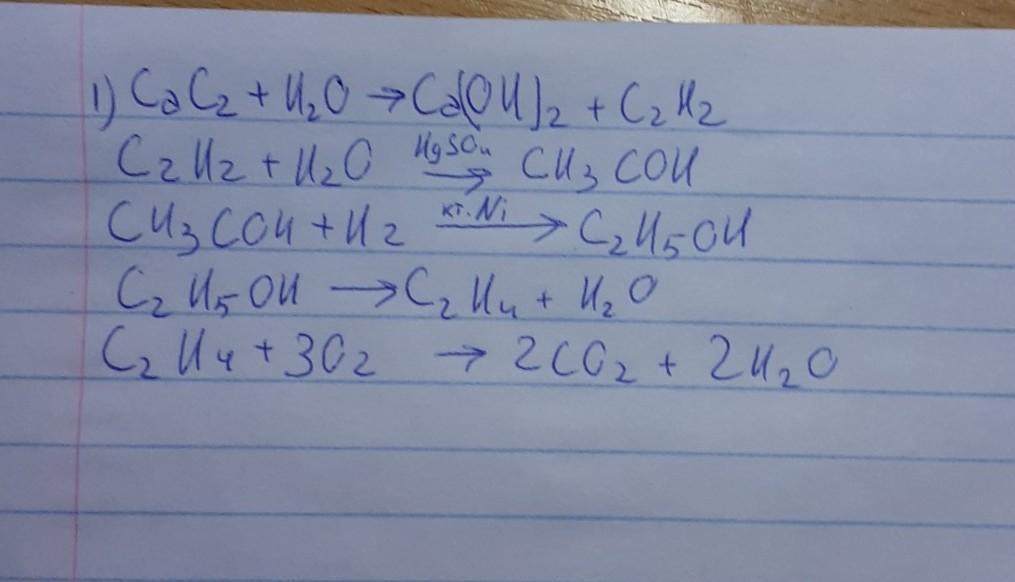 1) CaC₂ + H₂O → Ca(OH)₂ + C₂H₂
C₂H₂ + H₂O HgSO₄→ CH₃COH
CH₃COH + H₂ кт. Ni→ C₂H₅OH
C₂H₅OH → C₂H₄ + H₂O
C₂H₄ + 3O₂ → 2CO₂ + 2H₂O